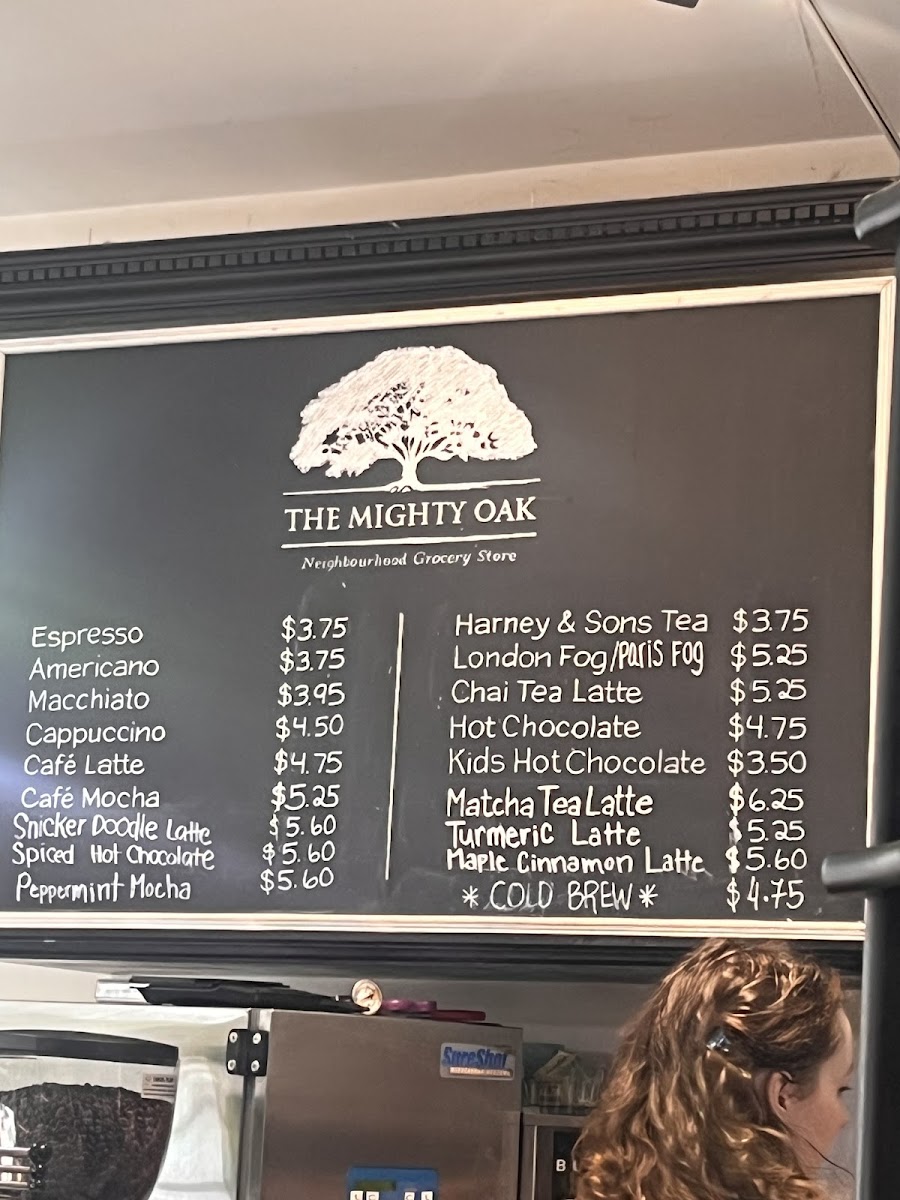 THE MIGHTY OAK
Neighbourhood Grocery Store
Espresso $3.75
Americano $3.75
Macchiato $3.95
Cappuccino $4.50
Café Latte $4.75
Café Mocha $5.25
Snicker Doodle Latte $5.60
Spiced Hot Chocolate $5.60
Peppermint Mocha $5.60
Harney & Sons Tea $3.75
London Fog/Paris Fog $5.25
Chai Tea Latte $5.25
Hot Chocolate $4.75
Kids Hot Chocolate $3.50
Matcha Tea Latte $6.25
Turmeric Latte $5.25
Maple Cinnamon Latte $5.60
* COLD BREW * $4.75
SureShot